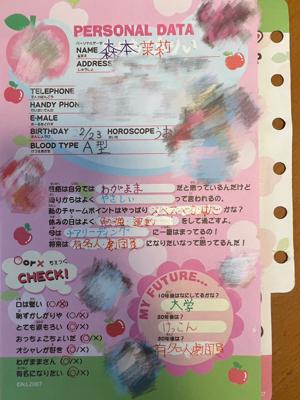 PERSONAL DATA
NAME 森本
ADDRESS
TELEPHONE
HANDY PHON
E-MALE
BIRTHDAY 2/23 HOROSCOPE うお
BLOOD TYPE A型
性格は自分では わがまま だと思っているんだけど
周りからはよく やさしい って言われるの。
私のチャームポイントはやっぱり かな?
休みの日はよく をして過ごすよ。
今は チアリーディング に一番はまってるの!
将来は 有名人 になりたいなって思ってるんだ!
○or× ちぇっく
CHECK!
口は堅い (○/×)
恥ずかしがりや (○/×)
とても涙もろい (○/×)
おっちょこちょいだ (○/×)
オシャレが好き (○/×)
わがままさん (○/×)
有名になりたい (○/×)
MY FUTURE...
10年後はなにしてるかな?
大学
20年後は?
けっこん
30年後は?
有名人